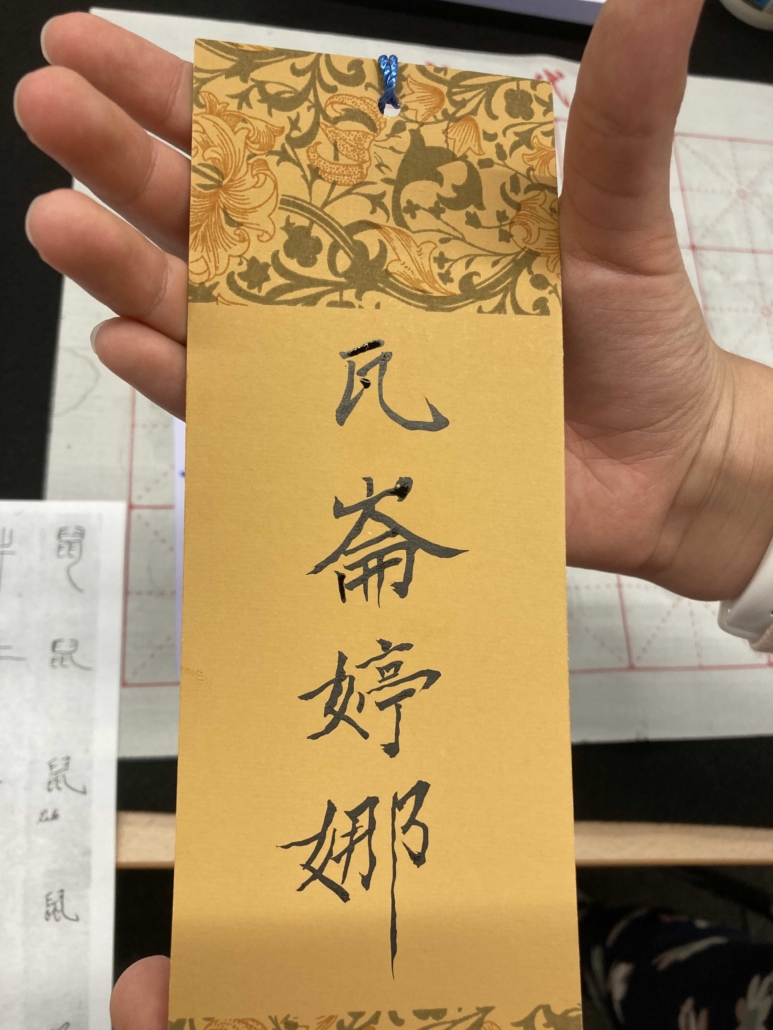 瓦
崙
婷
娜
鼠
鼠
鼠
鼠